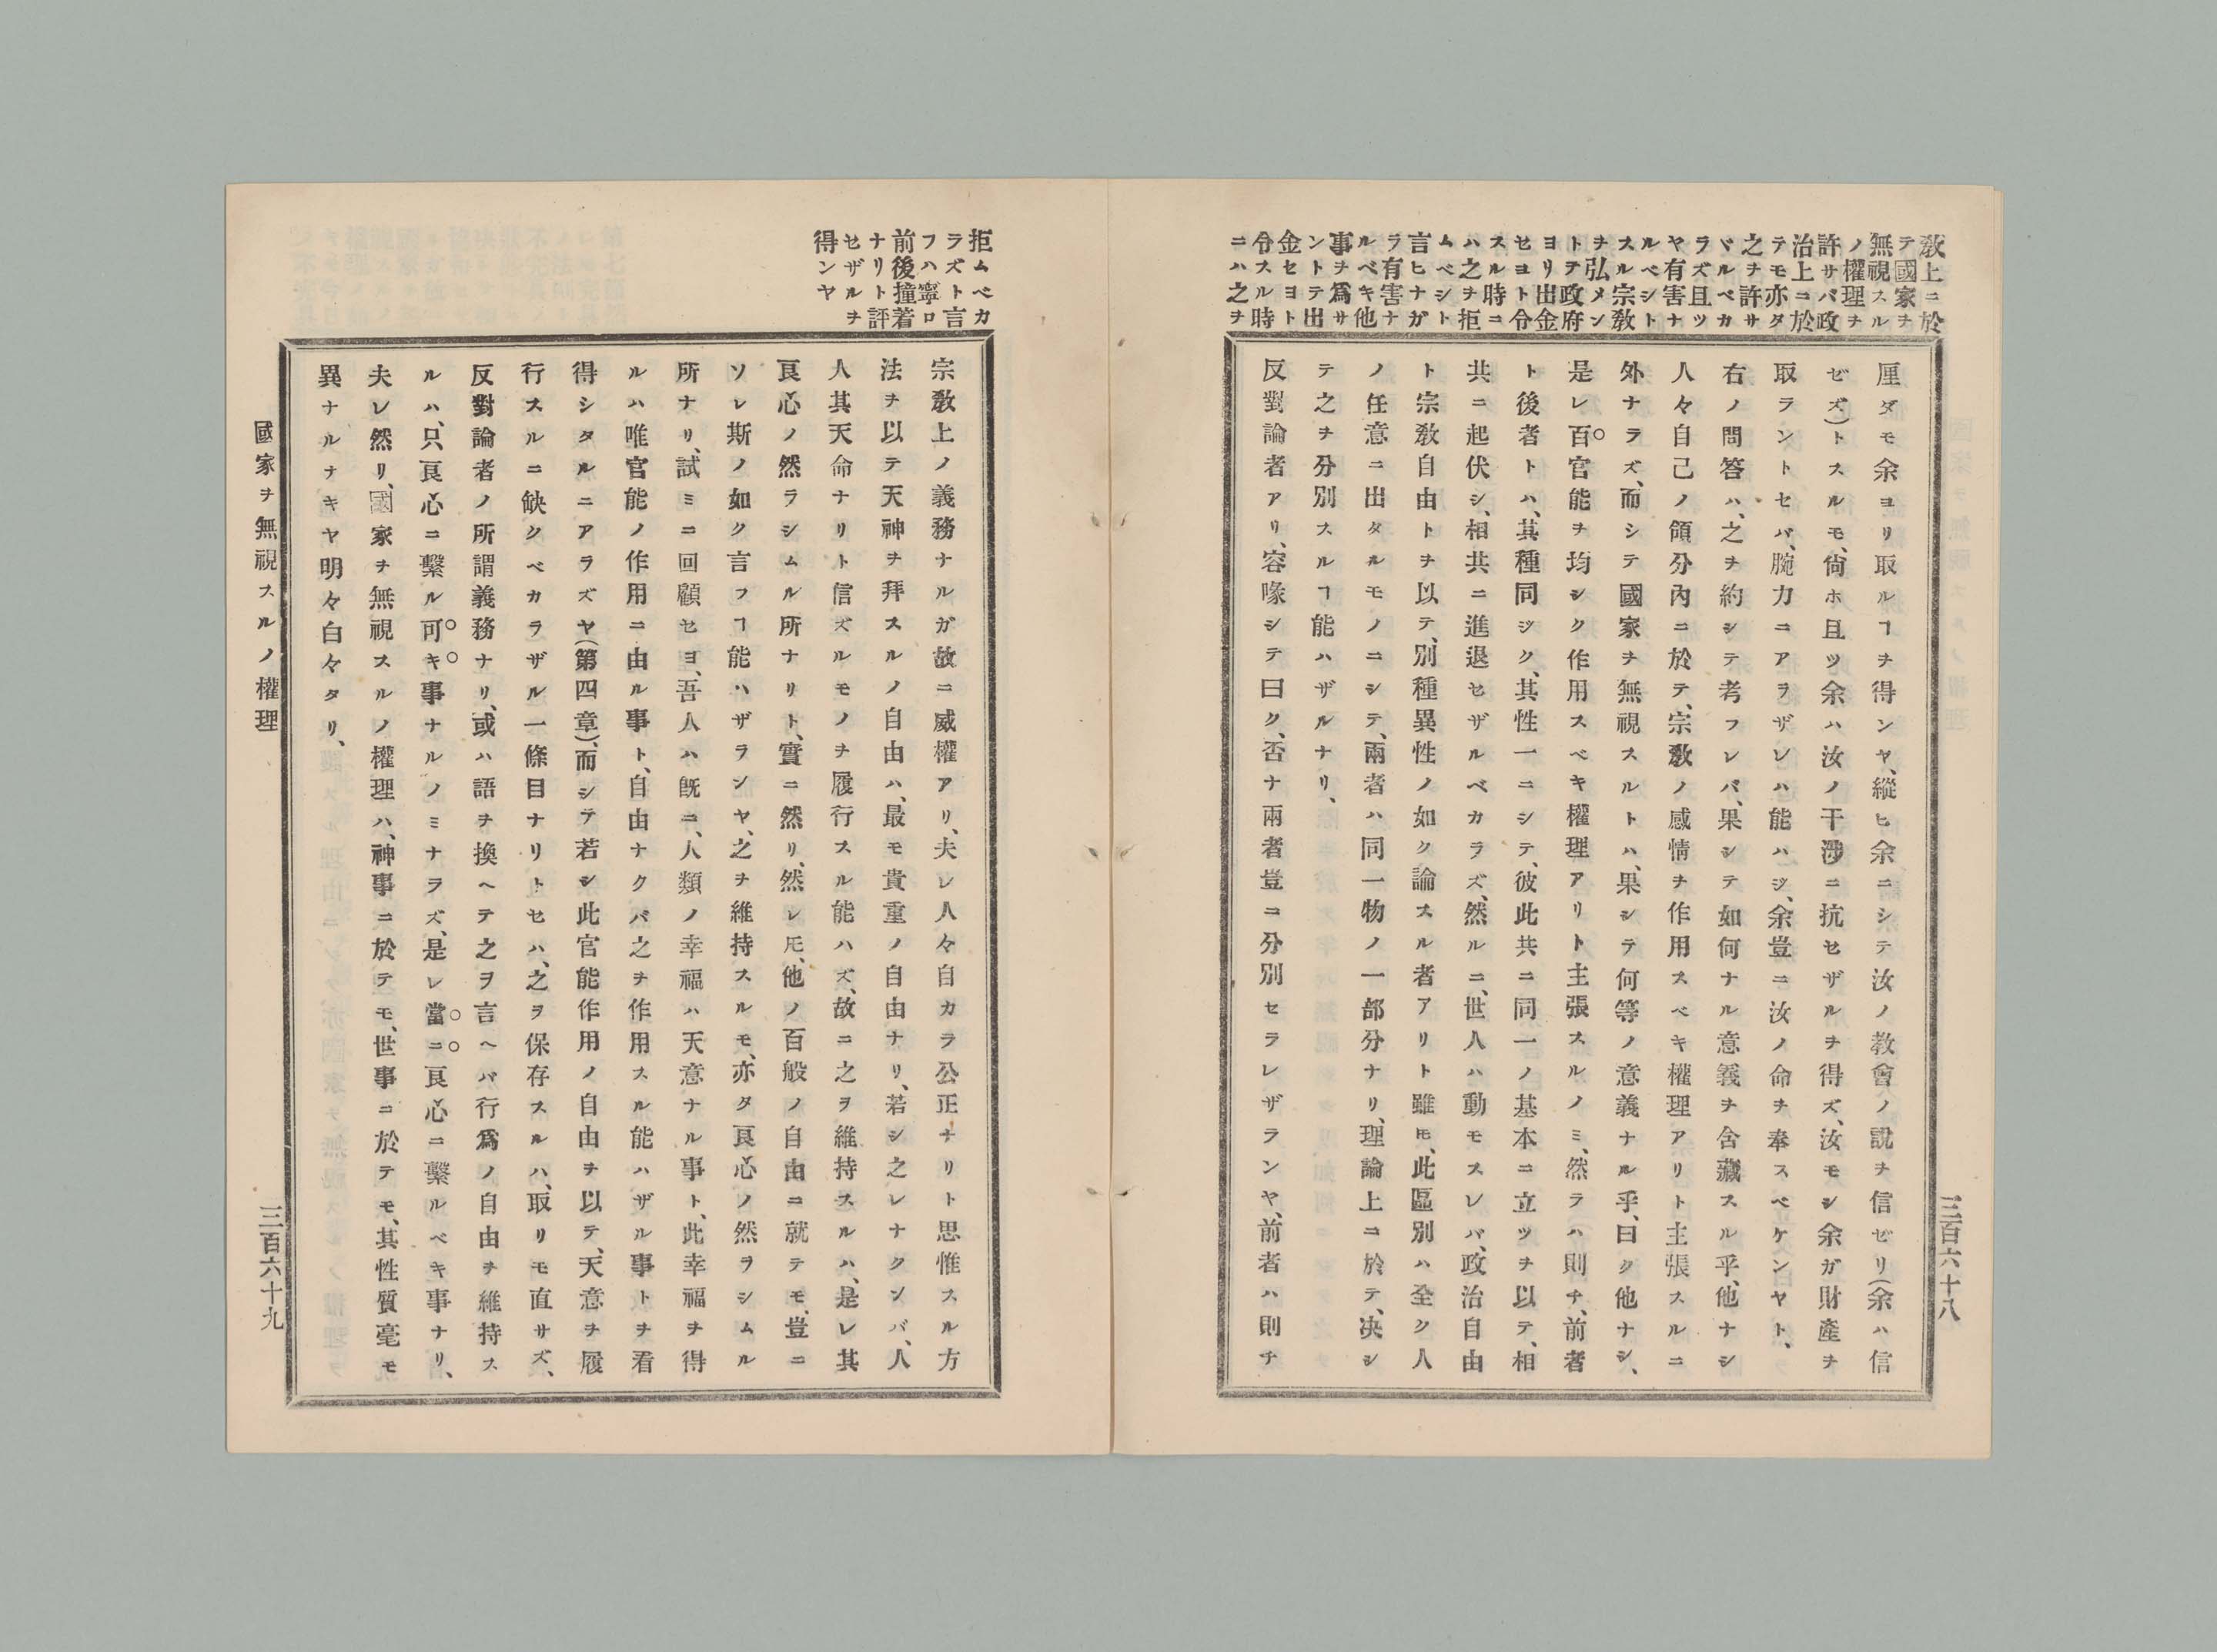 教上ニ於
テ國家ヲ
無視スル
ノ權理ヲ
許サバ政
治上ニ於
テモ亦タ
之ヲ許サ
ヾルベカ
ラズ且ツ
ヤ有害ナ
ルベシト
スル宗敎
ヲ弘メン
トテ政府
ヨリ出金
セヨト令
スル時ニ
ハ之ヲ拒
ムベシト
言ヒナガ
ラ有害ナ
ルベキ他
事ヲ爲サ
ントテ出
金セヨト
令スル時
ニハ之ヲ
厘ダモ余ヨリ取ルヿヲ得ンヤ、縱ヒ余ニシテ汝ノ教會ノ說ヲ信ゼリ(余ハ信
ゼズ)トスルモ、尙ホ且ツ余ハ汝ノ干涉ニ抗セザルヲ得ズ、汝モシ余ガ財產ヲ
取ラントセバ、腕力ニアラザレハ能ハジ、余豈ニ汝ノ命ヲ奉スベケンヤト、
右ノ問答ハ、之ヲ約シテ考フレバ、果シテ如何ナル意義ヲ含藏スル乎、他ナシ
人々自己ノ領分內ニ於テ、宗敎ノ感情ヲ作用スベキ權理アリト主張スルニ
外ナラズ、而シテ國家ヲ無視スルトハ、果シテ何等ノ意義ナル乎、曰ク他ナシ、
是レ百官能ヲ均シク作用スベキ權理アリト主張スルノミ、然ラハ則チ、前者
ト後者トハ、其種同ジク、其性一ニシテ、彼此共ニ同一ノ基本ニ立ツヲ以テ、相
共ニ起伏シ、相共ニ進退セザルベカラズ、然ルニ、世人ハ動モスレバ、政治自由
ト宗敎自由トヲ以テ、別種異性ノ如ク論スル者アリト雖𪜈、此區別ハ全ク人
ノ任意ニ出タルモノニシテ、兩者ハ同一物ノ一部分ナリ、理論上ニ於テ、决シ
テ之ヲ分別スルヿ能ハザルナリ、
反對論者アリ、容喙シテ曰ク、否ナ兩者豈ニ分別セラレザランヤ、前者ハ則チ
三百六十八
拒ムベカ
ラズト言
フハ寧ロ
前後撞着
ナリト評
セザルヲ
得ンヤ
宗敎上ノ義務ナルガ故ニ威權アリ、夫レ人々自カラ公正ナリト思惟スル方
法ヲ以テ天神ヲ拜スルノ自由ハ、最モ貴重ノ自由ナリ、若シ之レナクンバ、人
人其天命ナリト信ズルモノヲ履行スル能ハズ、故ニ之ヲ維持スルハ、是レ其
良心ノ然ラシムル所ナリト、實ニ然リ、然レ𪜈、他ノ百般ノ自由ニ就テモ、豈ニ
ソレ斯ノ如ク言フヿ能ハザランヤ、之ヲ維持スルモ、亦タ良心ノ然ヲシムル
所ナリ、試ミニ回顧セヨ、吾人ハ既ニ、人類ノ幸福ハ天意ナル事ト、此幸福ヲ得
ルハ唯官能ノ作用ニ由ル事ト、自由ナクバ之ヲ作用スル能ハザル事トヲ看
得シタルニアラズヤ(第四章)、而シテ若シ此官能作用ノ自由ヲ以テ、天意ヲ履
行スルニ缺クベカラザル一條目ナリトセハ、之ヲ保存スルハ、取リモ直サズ、
反對論者ノ所謂義務ナリ、或ハ語ヲ換ヘテ之ヲ言ヘバ行爲ノ自由ヲ維持ス
ルハ、只良心ニ繫ル可キ事ナルノミナラズ、是レ當ニ良心ニ繫ルベキ事ナリ、
夫レ然リ、國家ヲ無視スルノ權理ハ、神事ニ於テモ、世事ニ於テモ、其性質毫モ
異ナルナキヤ明々白々タリ、
國家ヲ無視スルノ權理
三百六十九